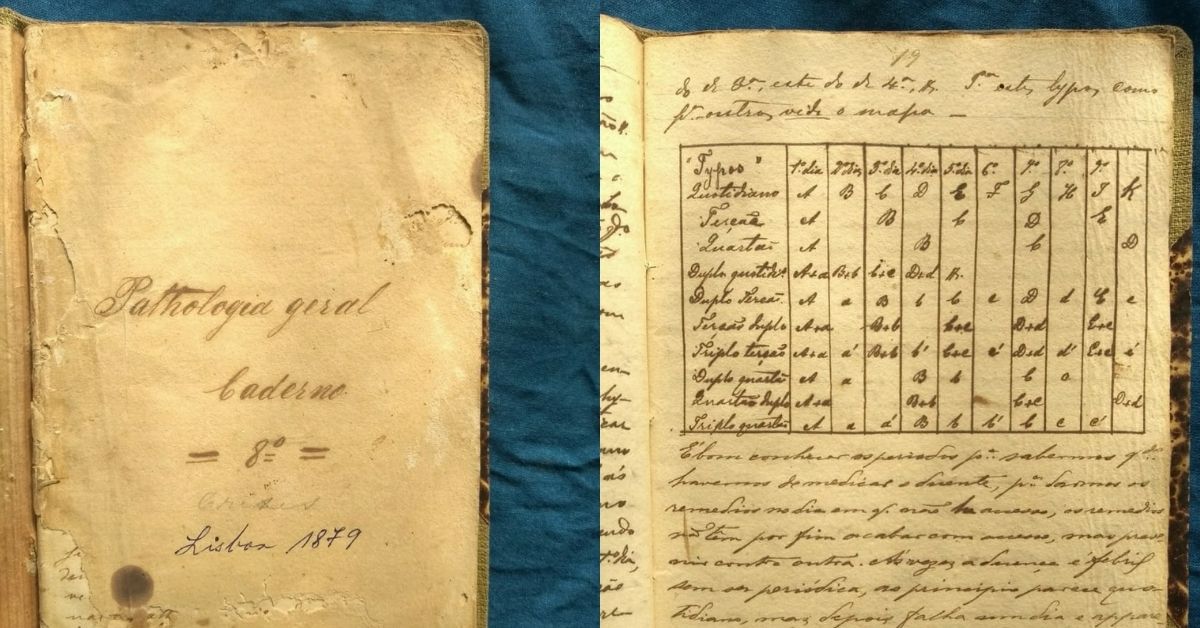 Pathologia geral
Caderno
= 8º =
Lisboa 1879
19
do de 3º, este do de 4º, &. Pª estes typos, como
pª outros, vide o mapa —
"Typos" 1º dia 2º dia 3º dia 4º dia 5º dia 6º 7º 8º 9º
Quotidiano A B C D E F G H I K
Terçãa A B C D E
Quartãa A B C D
Duplo quotidº A+a B+b C+c D+d &.
Duplo Terçã. A a B b C c D d E e
Terçãa duplo A+a B+b C+c D+d E+e
Triplo terçãa A+a a' B+b b' C+c c' D+d d' E+e e'
Duplo quartãa A a B b C c
Quartãa duplo A+a B+b C+c D+d
Triplo quartãa A a a' B b b' C c c'
É bom conhecer os periodos pª sabermos qdº
havemos de medicar o doente, pª darmos os
remedios no dia em q. não ha accesso, os remedios
não tem por fim acabar com accesso, mas prevenir
contra outro. As vezes a doença é febril
sem ser periódica, ao principio parece quo-
tidiano, mas depois falha um dia e appare